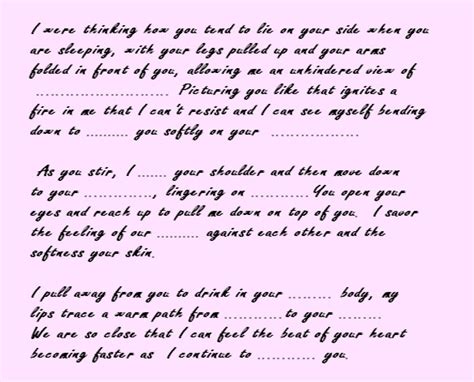 I were thinking how you tend to lie on your side when you
are sleeping, with your legs pulled up and your arms
folded in front of you, allowing me an unhindered view of
........................... Picturing you like that ignites a
fire in me that I can't resist and I can see myself bending
down to .......... you softly on your ...................
As you stir, I ....... your shoulder and then move down
to your .............., lingering on ............ You open your
eyes and reach up to pull me down on top of you. I savor
the feeling of our .......... against each other and the
softness your skin.
I pull away from you to drink in your ......... body, my
lips trace a warm path from ............ to your .........
We are so close that I can feel the beat of your heart
becoming faster as I continue to ............ you.